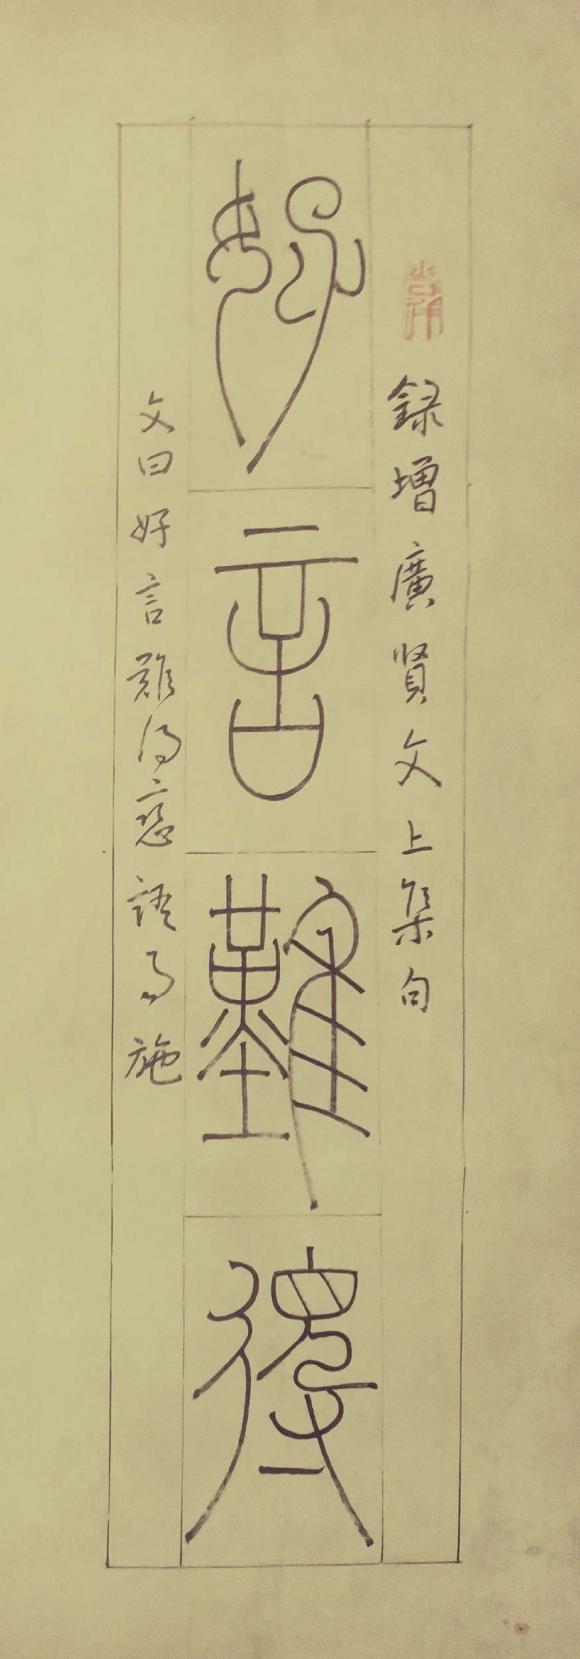 録增廣賢文上集句
好言難得
文曰好言難得惡語易施